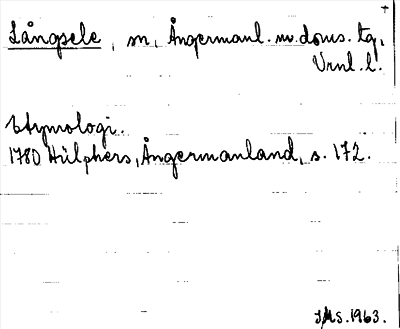 Långsele, m, Ångermanl. m. doms. tg,
Vrnl. l.
Etymologi.
1780 Hülphers, Ångermanland, s. 172.
JMS. 1963.